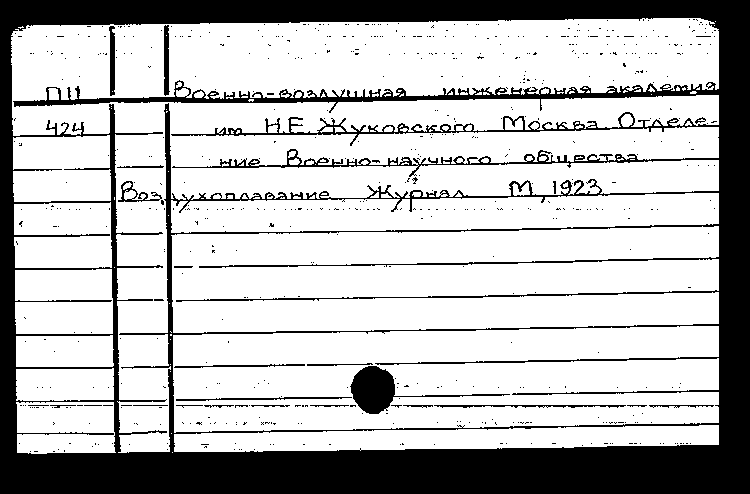 ПII Военно-воздушная инженерная академия
424 им. Н.Е. Жуковского Москва Отделе-
ние Военно-научного общества
Воздухоплавание Журнал М., 1923